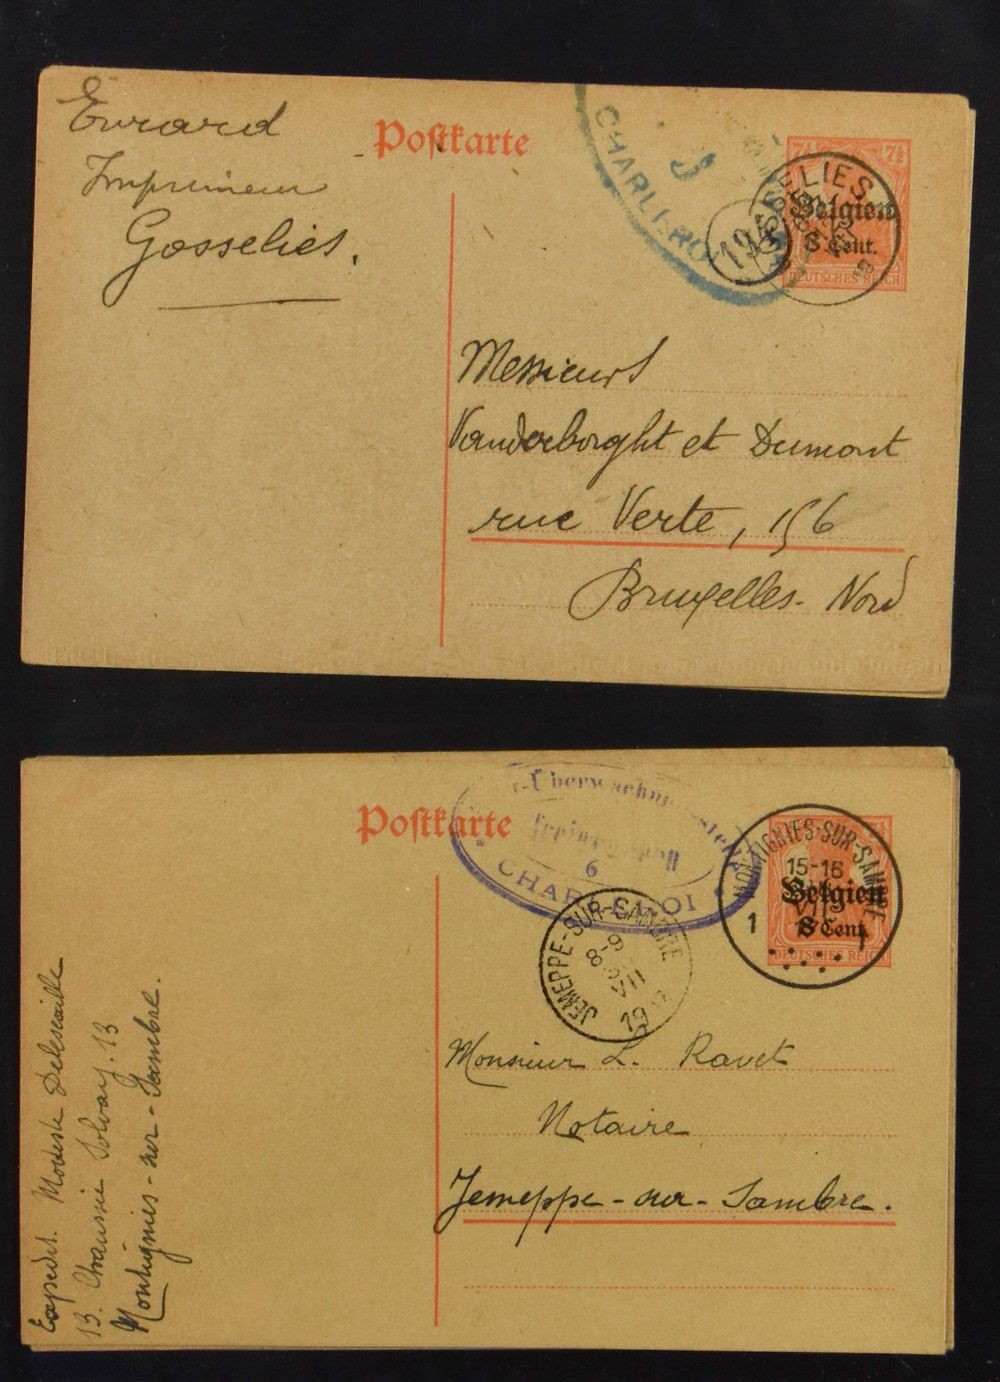 Evrard
Imprimeur
Gosselies.
Postkarte
CHARLEROI
GOSSELIES
7½
Belgien
8 Cent.
DEUTSCHES REICH
Messieurs
Vanderborght et Dumont
rue Verte, 156
Bruxelles-Nord
Postkarte
6
CHARLEROI
MONTIGNIES-SUR-SAMBRE
15-16
VII
1 1
Belgien
8 Cent.
DEUTSCHES REICH
JEMEPPE-SUR-SAMBRE
8-9
VII
Monsieur L. Ravet
Notaire
Jemeppe-sur-Sambre.
Expédit. Modeste
13. Chaussée Solvay. 13
Montignies-sur-Sambre.